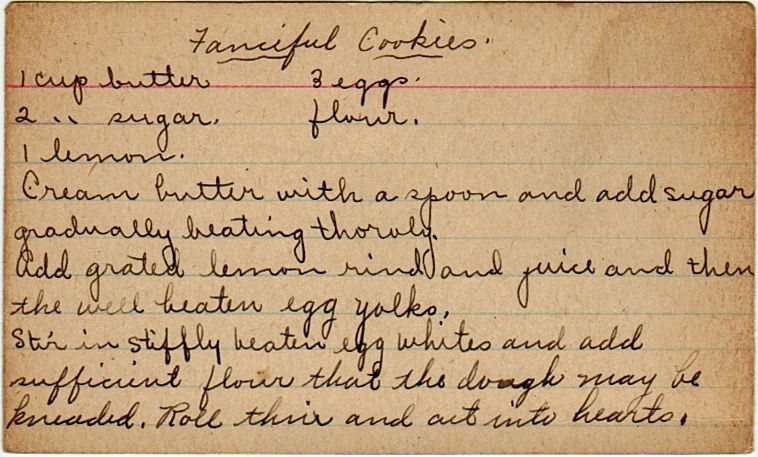 Fanciful Cookies.
1 cup butter 3 eggs.
2 " sugar. flour.
1 lemon.
Cream butter with a spoon and add sugar
gradually beating thoroly.
Add grated lemon rind and juice and then
the well beaten egg yolks.
Stir in stiffly beaten egg whites and add
sufficient flour that the dough may be
kneaded. Roll thin and cut into hearts.